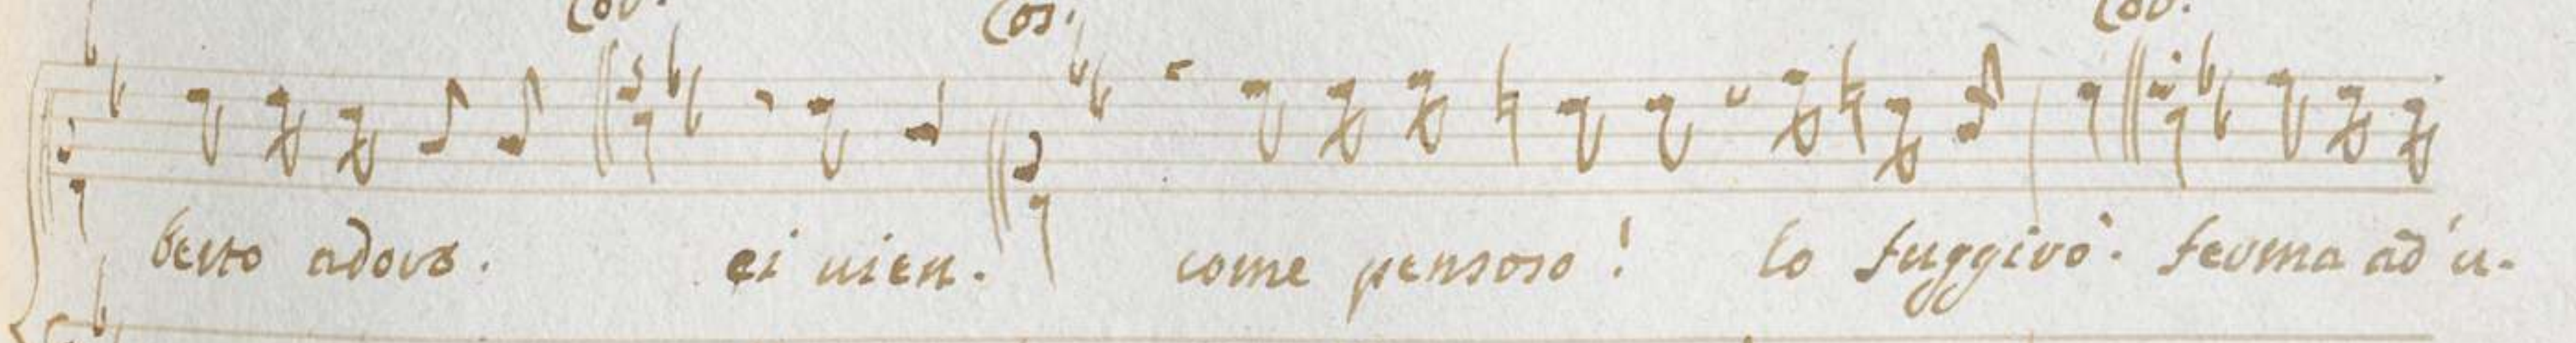 Cor. Cos. Cor.
berto adoro. ei uien. come pensoso! lo fuggirò. ferma ad u-